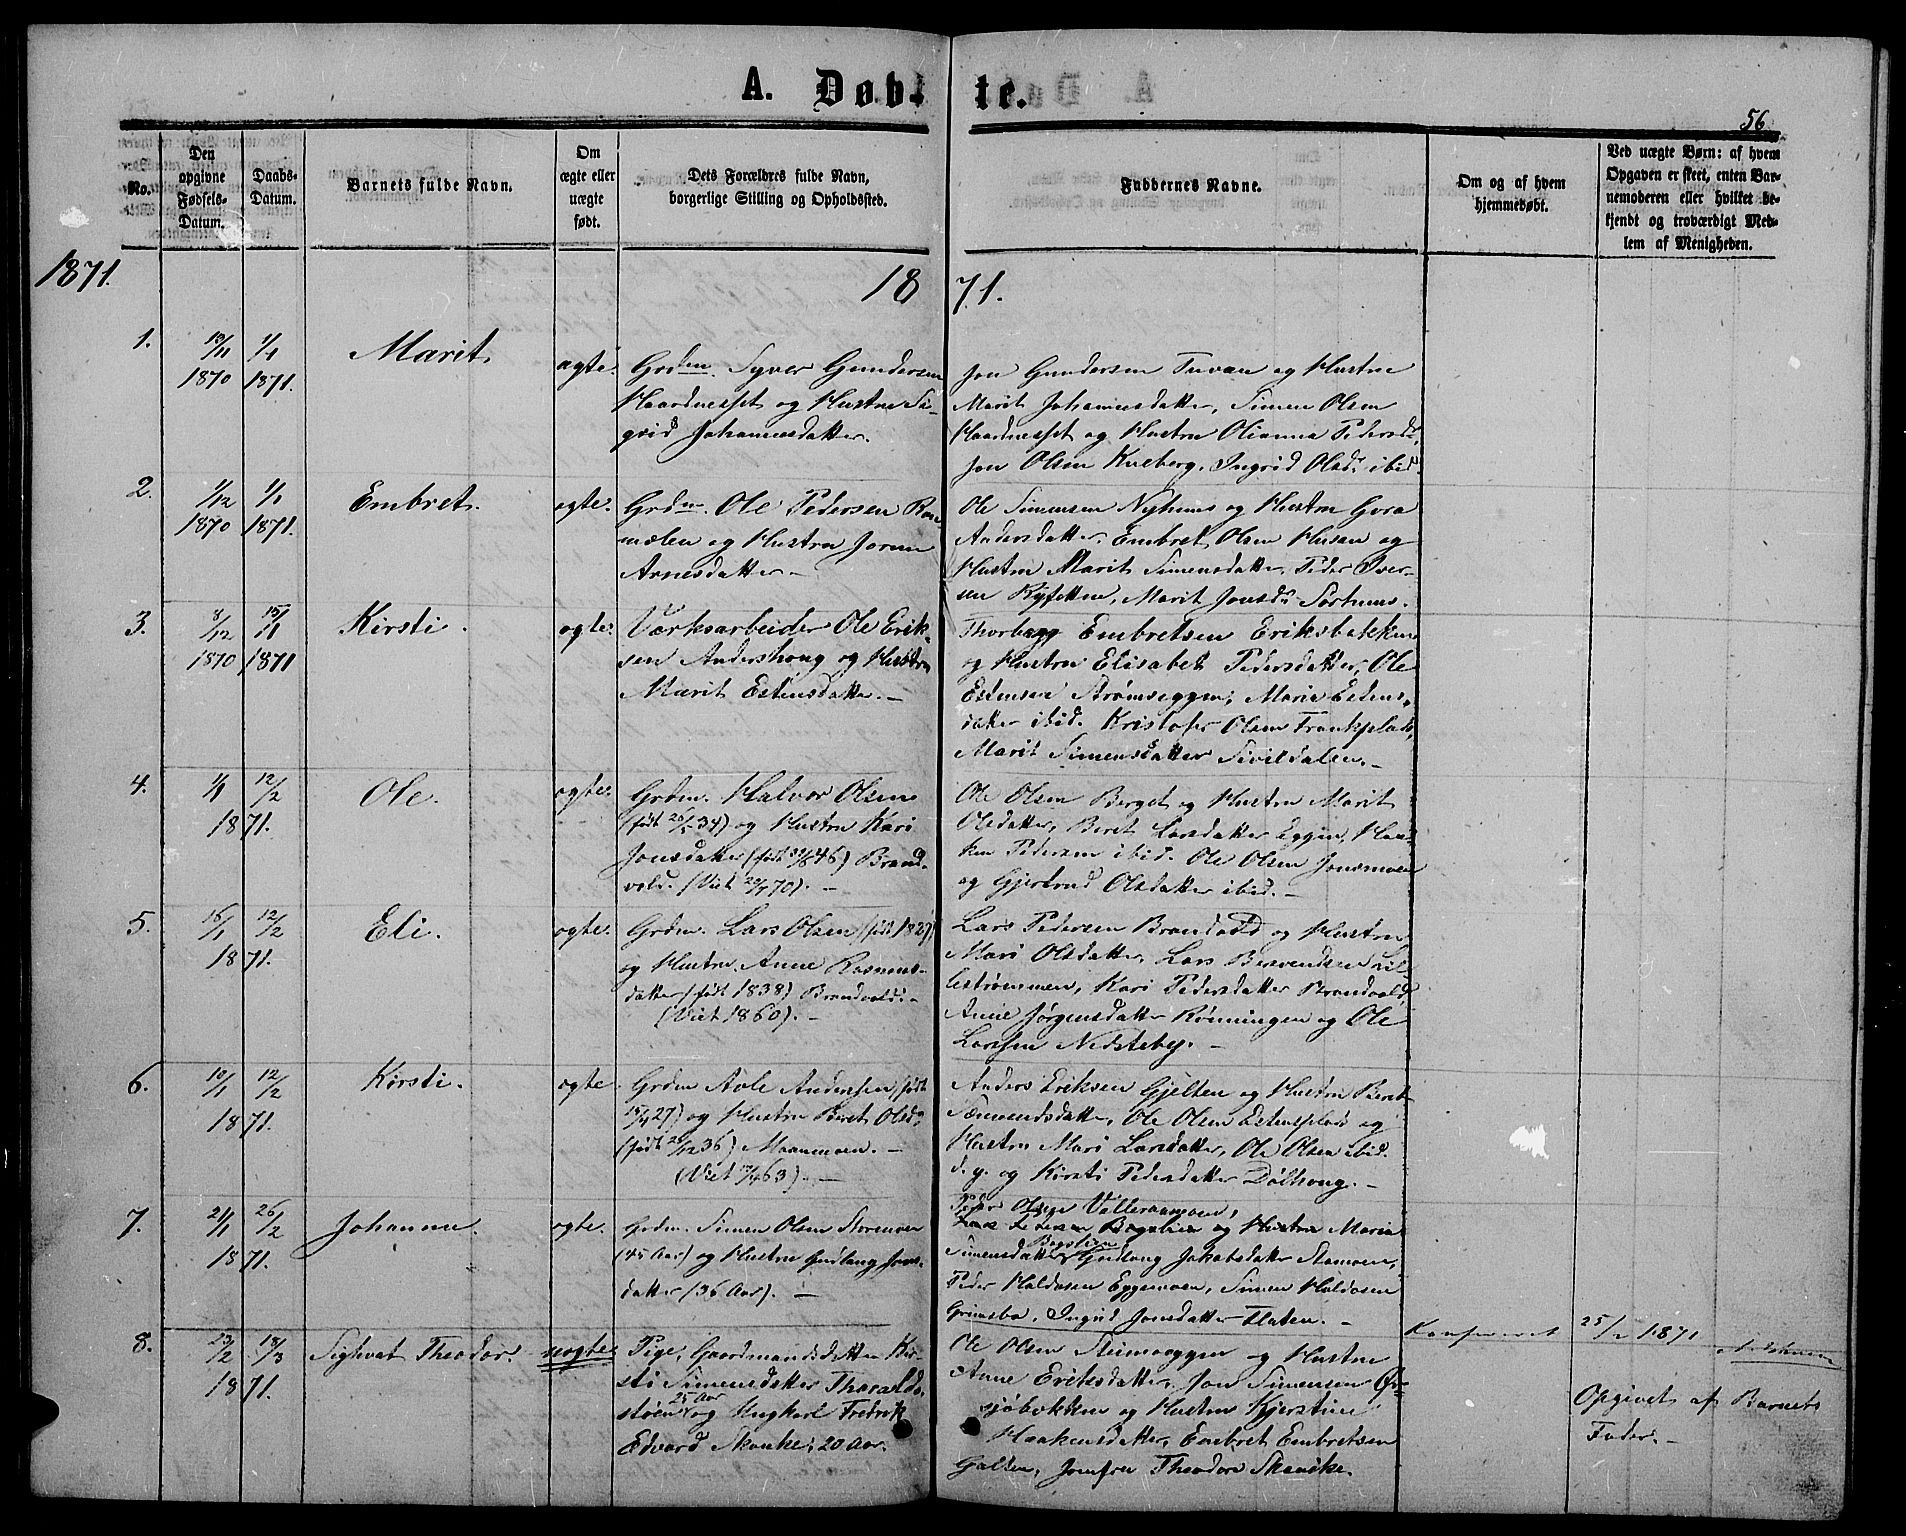 A. Døbte.
56
No.
Den opgivne Fødsels-Datum.
Daabs-Datum.
Barnets fulde Navn.
Om ægte eller uægte født.
Dets Forældres fulde Navn, borgerlige Stilling og Opholdssted.
Faddernes Navne.
Om og af hvem hjemmedøbt.
Ved uægte Børn: af hvem Opgaven er skeet, enten Barnemoderen eller hvilket bekjendt og troværdigt Medlem af Menigheden.
1871.
1871.
1.
13/11 1870
1/1 1871.
Marit.
ægte.
Grdm. Syver Gundersen
Haardnesset og Hustru Si-
grid Johannesdatter.
Jon Gundersen Tuvan og Hustru
Marit Johannesdatter, Simen Olsen
Haardnesset og Hustru Olianna Pedersdr.
Jon Olsen Kveberg, Ingrid Olsdr. ibid
2.
1/12 1870
1/1 1871.
Embret.
ægte.
Grdm. Ole Pedersen
og Hustru Jorun
Arnesdatter –
Ole Simensen Nyhuus og Hustru Gura
Andersdatter, Embret Olsen Husan og
Hustru Marit Simensdatter, Peder Iver-
sen, Marit Jonsdr.
3.
8/12 1870
15/1 1871
Kirsti.
ægte.
Værksarbeider Ole Erik-
sen Andershoug og Hustru
Marit Estensdatter. –
Thorberg Embretsen Eriksbakken
og Hustru Elisabet Pedersdatter, Ole
Estensen Strømseggen, Marie Estens-
datter ibid. Kristofer Olsen Frankplads,
Marit Simensdatter Sivildalen. –
4.
1/1
12/2
1871.
Ole.
ægte.
Grdm. Halvor Olsen
(født 20/5 34) og Hustru Kari
Jonsdatter (født 46) Brand-
vold. (Viet 70). –
Ole Olsen Berget og Hustru Marit
Olsdatter, Beret Larsdatter Eggen, Haa-
ken Pedersen ibid. Ole Olsen Jonsmoen
og Gjertrud Olsdatter ibid. –
5.
16/1
12/2
1871.
Eli.
ægte.
Grdm. Lars Olsen (født 1829)
og Hustru Anne Rasmus-
datter (født 1838) Brandvold. –
(Viet 1860). –
Lars Pedersen Brandvold og Hustru
Mari Olsdatter, Lars Berventsen Lil-
lestrømmen, Kari Pedersdatter Brandvold,
Anne Jørgensdatter Rønningen og Ole
Larssen Nedsteby. –
6.
10/1
12/2
1871.
Kirsti.
ægte
Grdm Avle Anderssen (født
27) og Hustru Beret Olsdr.
(født 36) Maanmoen. –
(Viet 63). –
Anders Eriksen Gjelten og Hustru Beret
datter, Ole Olsen Estensplads og
Hustru Mari Larsdatter, Ole Olsen ibid.
d. y. og Kirsti Pedersdatter Dølhoug. –
7.
21/1
26/2
1871.
Johanne.
ægte.
Grdm. Simen Olsen Storemoen
(45 Aar) og Hustru Gudlaug Jons-
datter (36 Aar). –
Peder Olsen,
Lars Pedersen Bogolien og Hustru Maria
Simensdatter Bogolien, Gudlaug Jakobsdatter Stamoen,
Peder Haldosen Eggemoen, Simen Haldosen
Grimsbo, Ingrid Jonsdatter Flaten. –
8.
23/2
18/3
1871.
Sighvat Theodor.
uægte
Pige, Gaardmandsdatter Kir-
sti Simensdatter Thorald-
støen 25 Aar og Ungkarl Fredrik
Edvard Skanke, 20 Aar.
Ole Olsen Steimoeggen og Hustru
Anne Eriksdatter, Jon Simensen Øv-
sjøbakken og Hustru Kjerstine
Haakensdatter, Embret Embretsen
Galten, Jomfru Theodora Skancke.
25/2 1871
Opgivet af Barnets
Fader. –